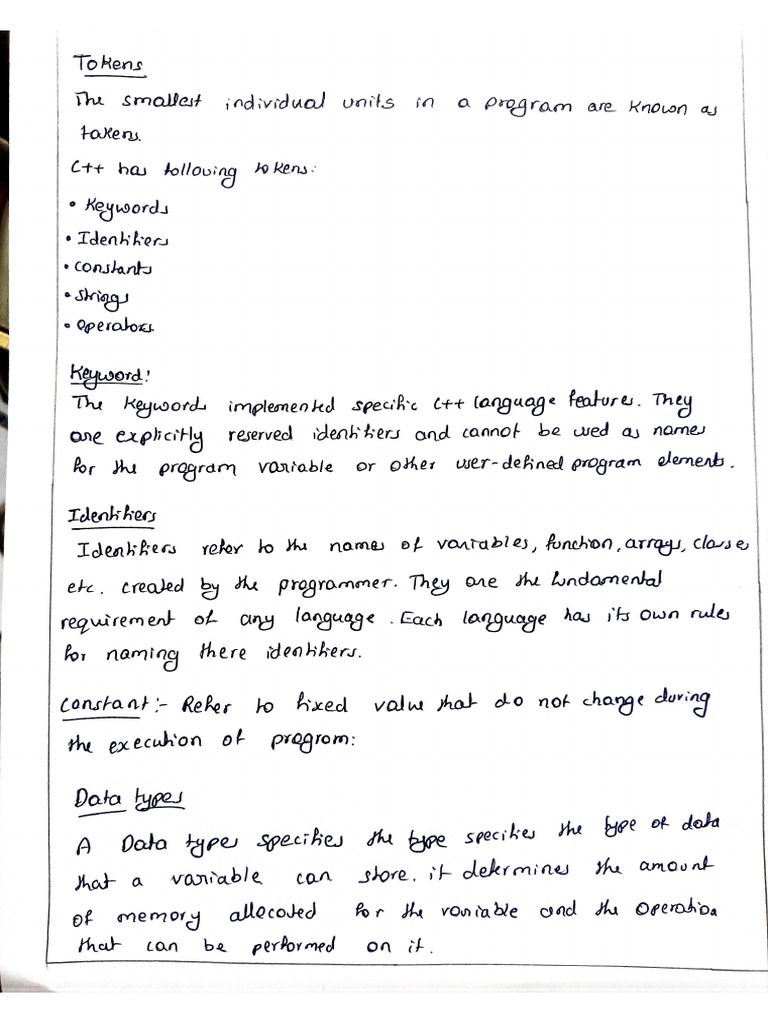 Tokens
The smallest individual units in a program are known as
tokens.
C++ has following tokens:
• Keywords
• Identifiers
• constants
• strings
• operators.
Keyword:
The Keywords implemented specific C++ language features. They
are explicitly reserved identifiers and cannot be used as names
for the program variable or other user-defined program elements.
Identifiers
Identifiers refer to the names of variables, function, arrays, classes
etc. created by the programmer. They are the fundamental
requirement of any language. Each language has its own rules
for naming there identifiers.
Constant:- Refer to fixed value that do not change during
the execution of program:
Data types
A Data type specifies the type specifies the type of data
that a variable can store. it determines the amount
of memory allocated for the variable and the operation
that can be performed on it.